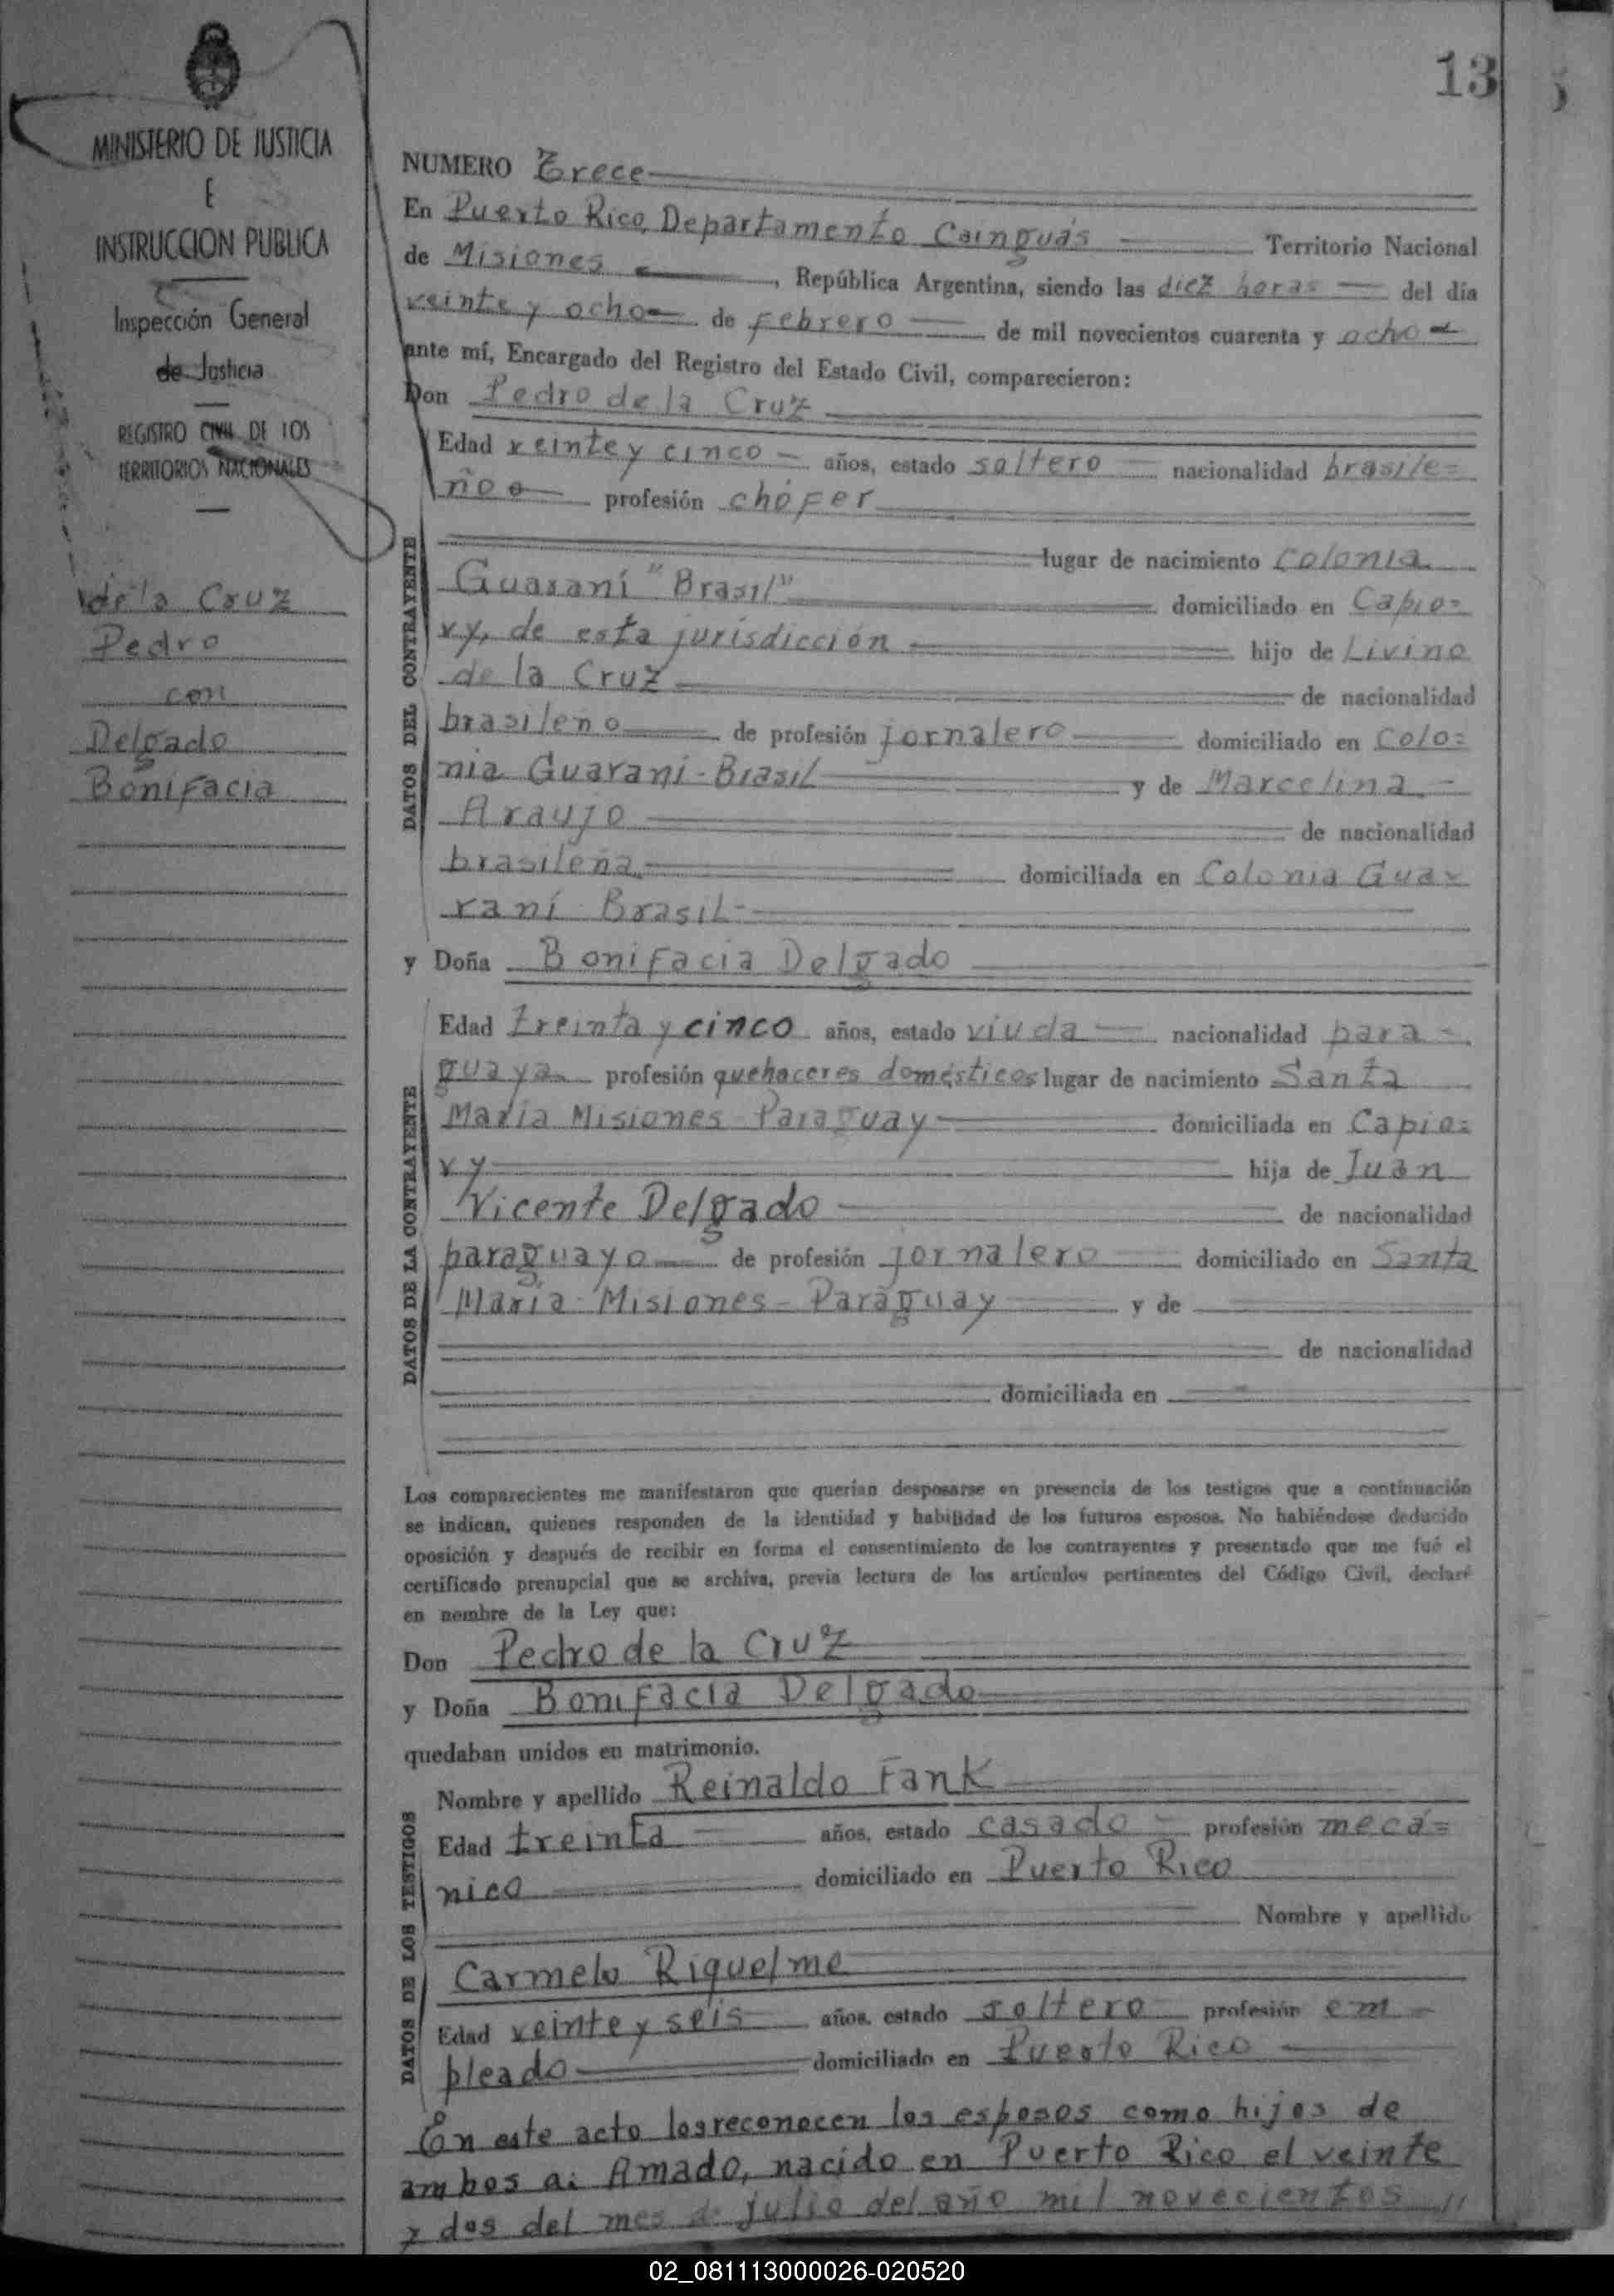 13
MINISTERIO DE JUSTICIA
E
INSTRUCCION PUBLICA
Inspección General
de Justicia
REGISTRO CIVIL DE LOS
TERRITORIOS NACIONALES
de la Cruz
Pedro
con
Delgado
Bonifacia
NUMERO Trece
En Puerto Rico, Departamento Cainguás Territorio Nacional
de Misiones, República Argentina, siendo las diez horas del día
veinte y ocho de febrero de mil novecientos cuarenta y ocho
ante mí, Encargado del Registro del Estado Civil, comparecieron:
Don Pedro de la Cruz
DATOS DEL CONTRAYENTE
Edad veinte y cinco años, estado soltero nacionalidad brasile=
ño profesión chófer
lugar de nacimiento Colonia
Guaraní "Brasil" domiciliado en Capio=
vy, de esta jurisdicción hijo de Livino
de la Cruz de nacionalidad
brasileño de profesión jornalero domiciliado en Colo=
nia Guaraní-Brasil y de Marcelina
Araujo de nacionalidad
brasileña domiciliada en Colonia Gua-
raní Brasil-
y Doña Bonifacia Delgado
DATOS DE LA CONTRAYENTE
Edad treinta y cinco años, estado viuda nacionalidad para-
guaya profesión quehaceres domésticos lugar de nacimiento Santa
María Misiones-Paraguay domiciliada en Capio=
vy hija de Juan
Vicente Delgado de nacionalidad
paraguayo de profesión jornalero domiciliado en Santa
María-Misiones-Paraguay y de
de nacionalidad
domiciliada en
Los comparecientes me manifestaron que querían desposarse en presencia de los testigos que a continuación
se indican, quienes responden de la identidad y habilidad de los futuros esposos. No habiéndose deducido
oposición y después de recibir en forma el consentimiento de los contrayentes y presentado que me fué el
certificado prenupcial que se archiva, previa lectura de los artículos pertinentes del Código Civil, declaré
en nombre de la Ley que:
Don Pedro de la Cruz
y Doña Bonifacia Delgado
quedaban unidos en matrimonio.
DATOS DE LOS TESTIGOS
Nombre y apellido Reinaldo Fank
Edad treinta años, estado casado profesión mecá=
nico domiciliado en Puerto Rico
Nombre y apellido
Carmelo Riquelme
Edad veinte y seis años, estado soltero profesión em-
pleado domiciliado en Puerto Rico
En este acto los reconocen los esposos como hijos de
ambos a: Amado, nacido en Puerto Rico el veinte
y dos del mes de julio del año mil novecientos
02_081113000026-020520